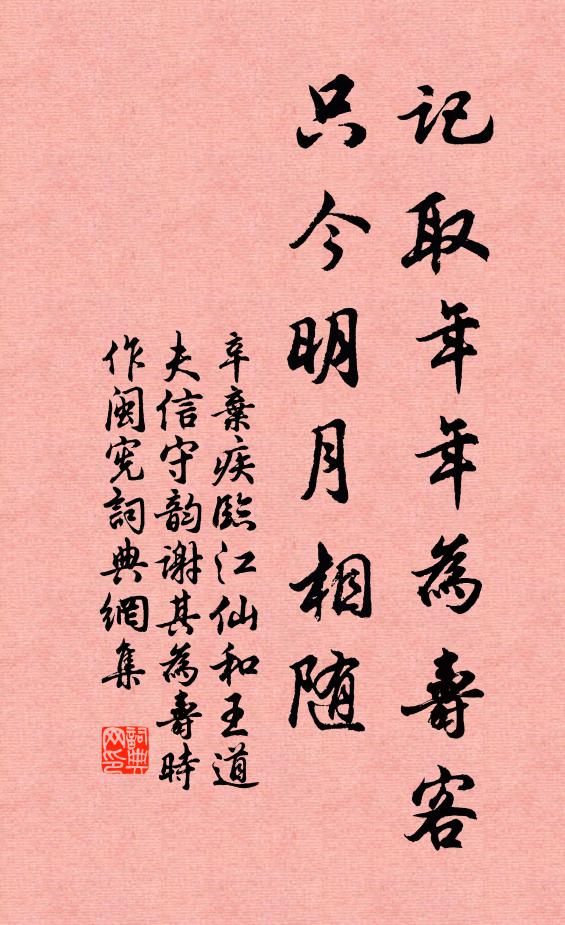 記取年年為壽客
只今明月相随
辛棄疾臨江仙和王道
夫信守韵謝其為壽時
作閩宪詞典網集
詞典网印